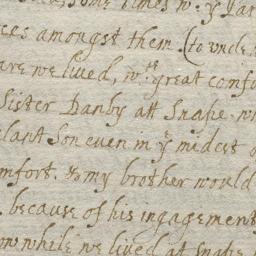 Some times wn. ye Par
ces amongst them (to uncle
are we lived, wth. great comfo
Sister Danby att Snape. w
lant Son even in ye midest o
mfort. so my brother would
because of his ingagement
on while we lived at Snape